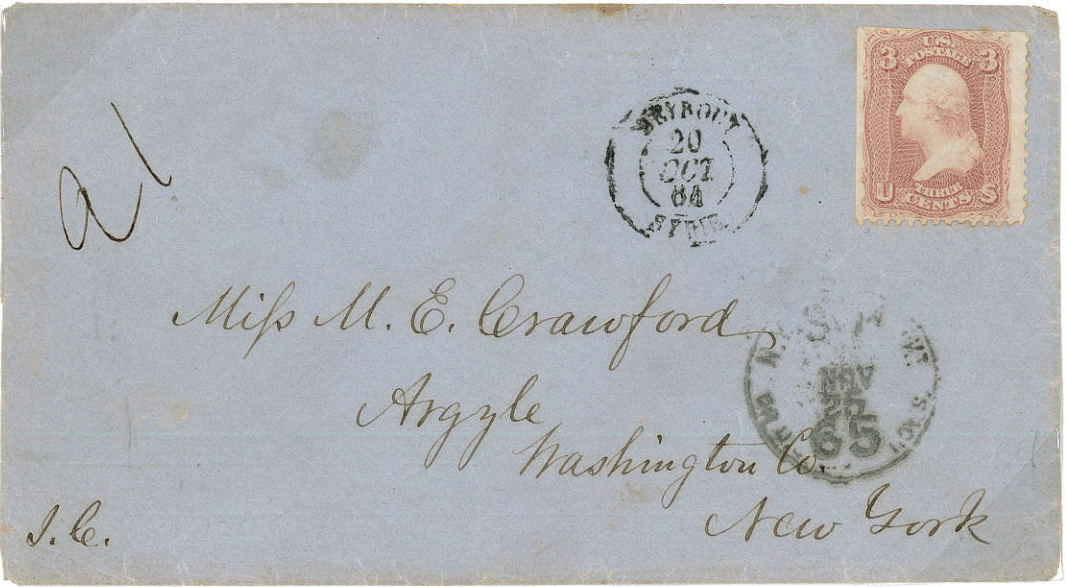 3 U.S. 3
POSTAGE
THREE
U CENTS S
BEYROUT
20
OCT
64
SYRIE
21
Miss M. E. Crawford
NOV
25
65
Argyle
Washington Co.
New York
J. C.